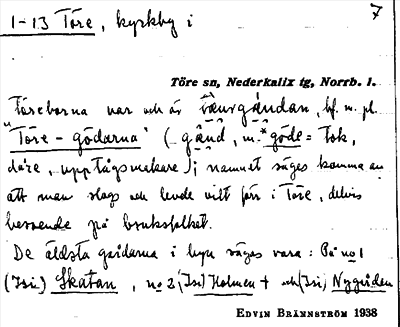 1-13 Töre, kyrkby i
7
Töre sn, Nederkalix tg, Norrb. l.
Töreborna var och är bf. m. pl.
"Töre-gödarna" (gǟnd, m. *göde = tok,
dåre, upptågsmakare); namnet säges komma av
att man slogs och levde vilt förr i Töre, delvis
beroende på bruksfolket.
De äldsta gårdarna i byn säges vara: På no 1
(Isi) Skatan, no 2 (Isi) Holmen + och (Isi) Nygården
EDVIN BRÄNNSTRÖM 1938